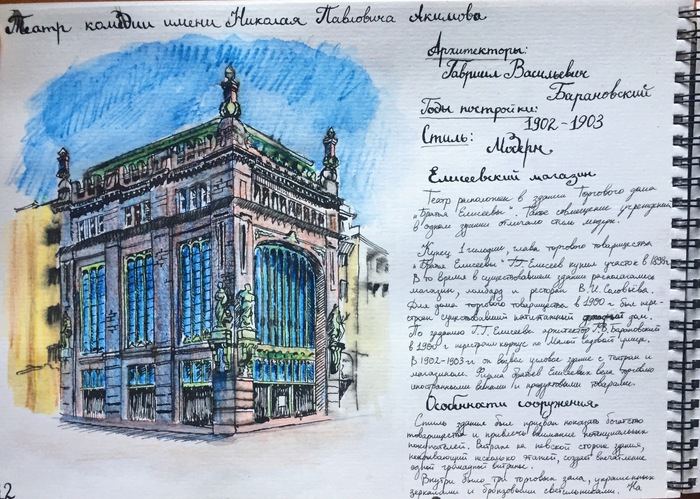 Театр комедии имени Николая Павловича Акимова
Архитекторы:
Гавриил Васильевич
Барановский
Годы постройки:
1902-1903
Стиль:
Модерн
Елисеевский магазин
Театр расположен в здании Торгового дома
„Братья Елисеевы". Такое совмещение учреждений
в одном здании отличало стиль модерн.
Купец 1 гильдии, глава торгового товарищества
„Братья Елисеевы" Г.Г. Елисеев купил участок в 1898г.
В то время в существовавшем здании располагались
магазин, ломбард и ресторан В.И. Соловьёва.
Для дома торгового товарищества в 1900 г. был пере-
строен существовавший пятиэтажный дом.
По заданию Г.Г. Елисеева архитектор Г.В. Барановский
в 1900 г. перестроил корпус по Малой Садовой улице.
В 1902-1903 г. он возвёл угловое здание с театром и
магазином. Фирма братьев Елисеевых вела торговлю
иностранными винами и продуктовыми товарами.
Особенности сооружения
Стиль здания был призван показать богатство
товарищества и привлечь внимание потенциальных
покупателей. Витраж на невской стороне здания,
несколько этажей, создаёт впечатление
одной громадной витрины.
Внутри было три торговых зала, украшенных
зеркалами и бронзовыми светильниками. На
2